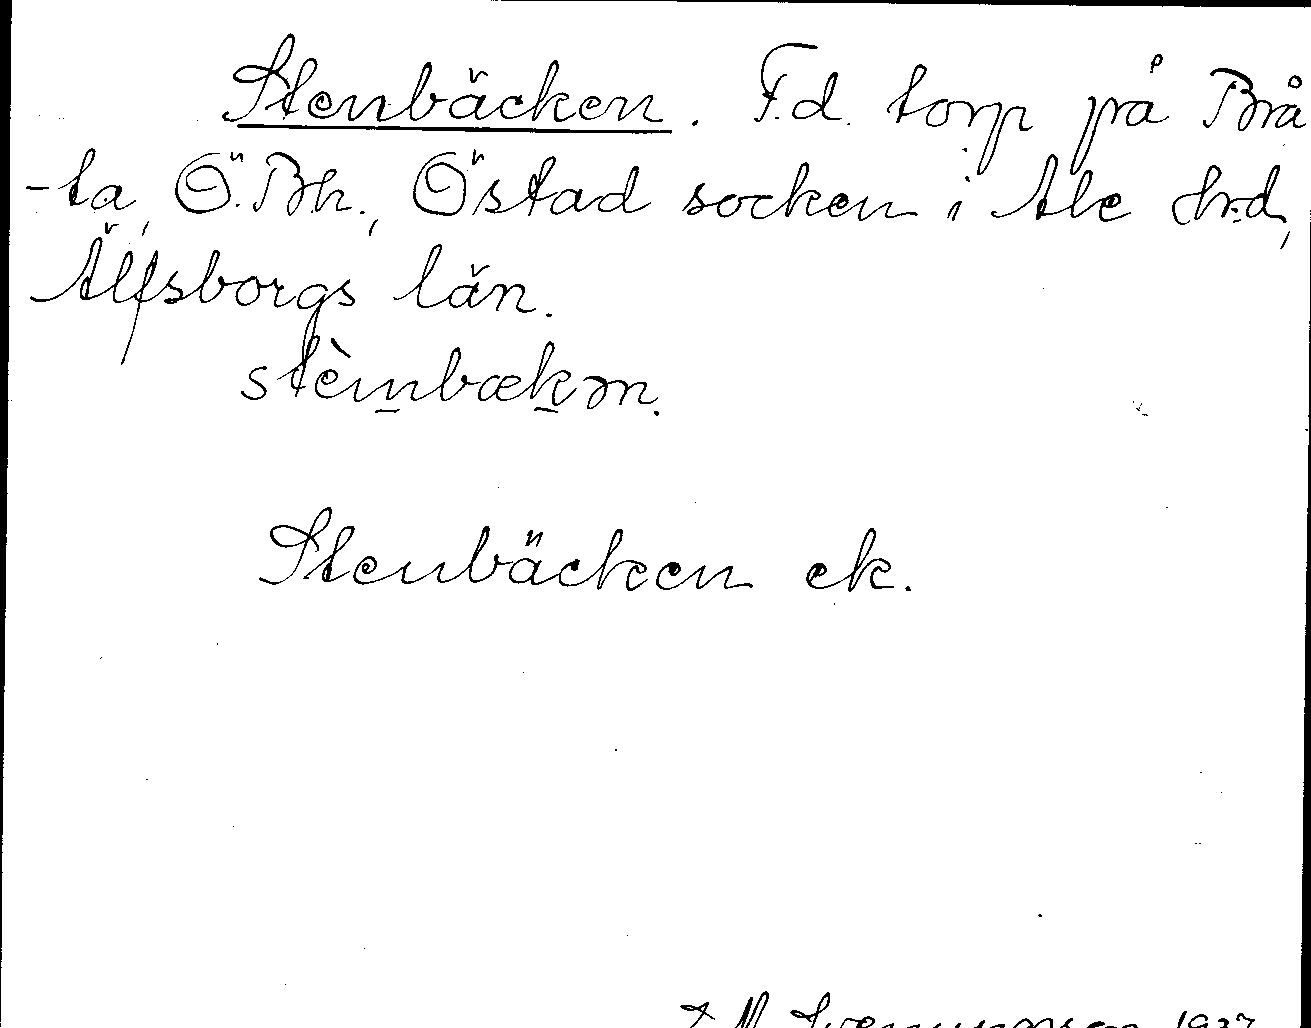 Stenbäcken. F.d. torp på Brå
-ta, Ö. Bh., Östad socken i Ale hrd,
Älfsborgs län.
stèmbækən.
Stenbäcken ek.
1927